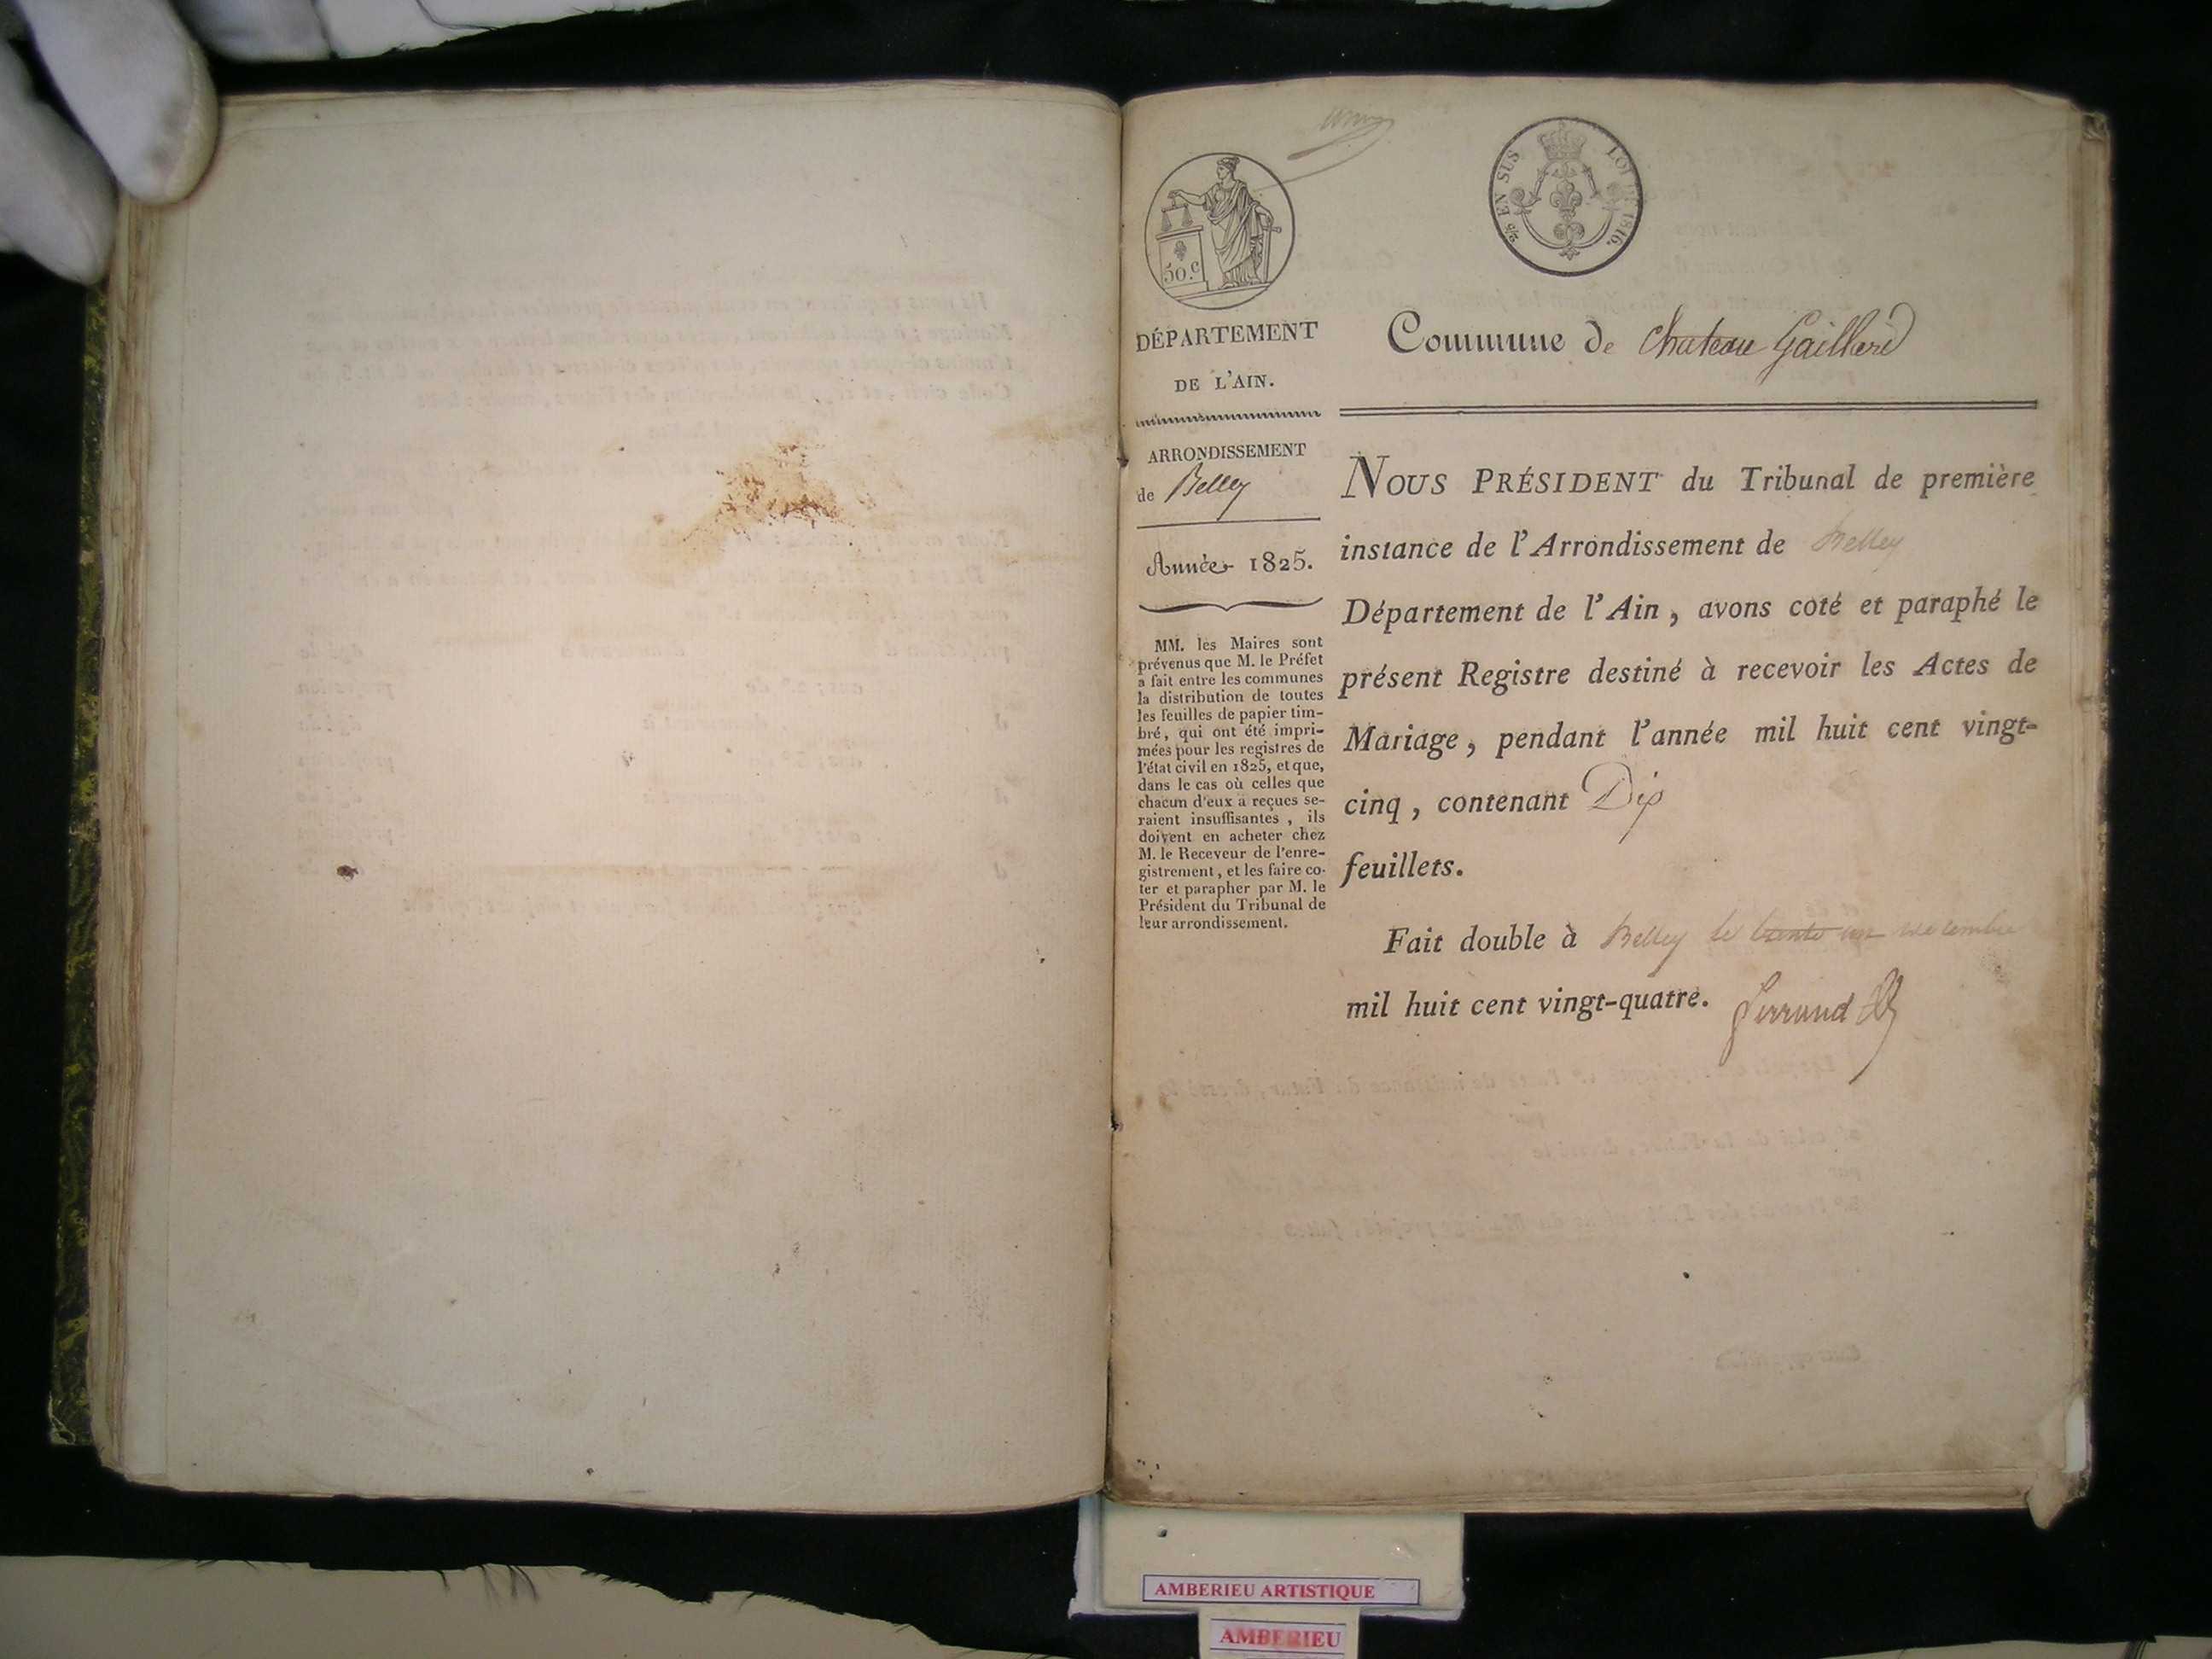 50.c
EN SUS
LOI DE 1816.
DÉPARTEMENT
DE L'AIN.
ARRONDISSEMENT
de Belley
Année 1825.
MM. les Maires sont
prévenus que M. le Préfet
a fait entre les communes
la distribution de toutes
les feuilles de papier tim-
bré, qui ont été impri-
mées pour les registres de
l'état civil en 1825, et que,
dans le cas où celles que
chacun d'eux a reçues se-
raient insuffisantes, ils
doivent en acheter chez
M. le Receveur de l'enre-
gistrement, et les faire co-
ter et parapher par M. le
Président du Tribunal de
leur arrondissement.
Commune de Chateau Gaillard
NOUS PRÉSIDENT du Tribunal de première
instance de l'Arrondissement de Belley
Département de l'Ain, avons coté et paraphé le
présent Registre destiné à recevoir les Actes de
Mariage, pendant l'année mil huit cent vingt-
cinq, contenant Dix
feuillets.
Fait double à Belley le trente un decembre
mil huit cent vingt-quatre.
AMBERIEU ARTISTIQUE
AMBERIEU